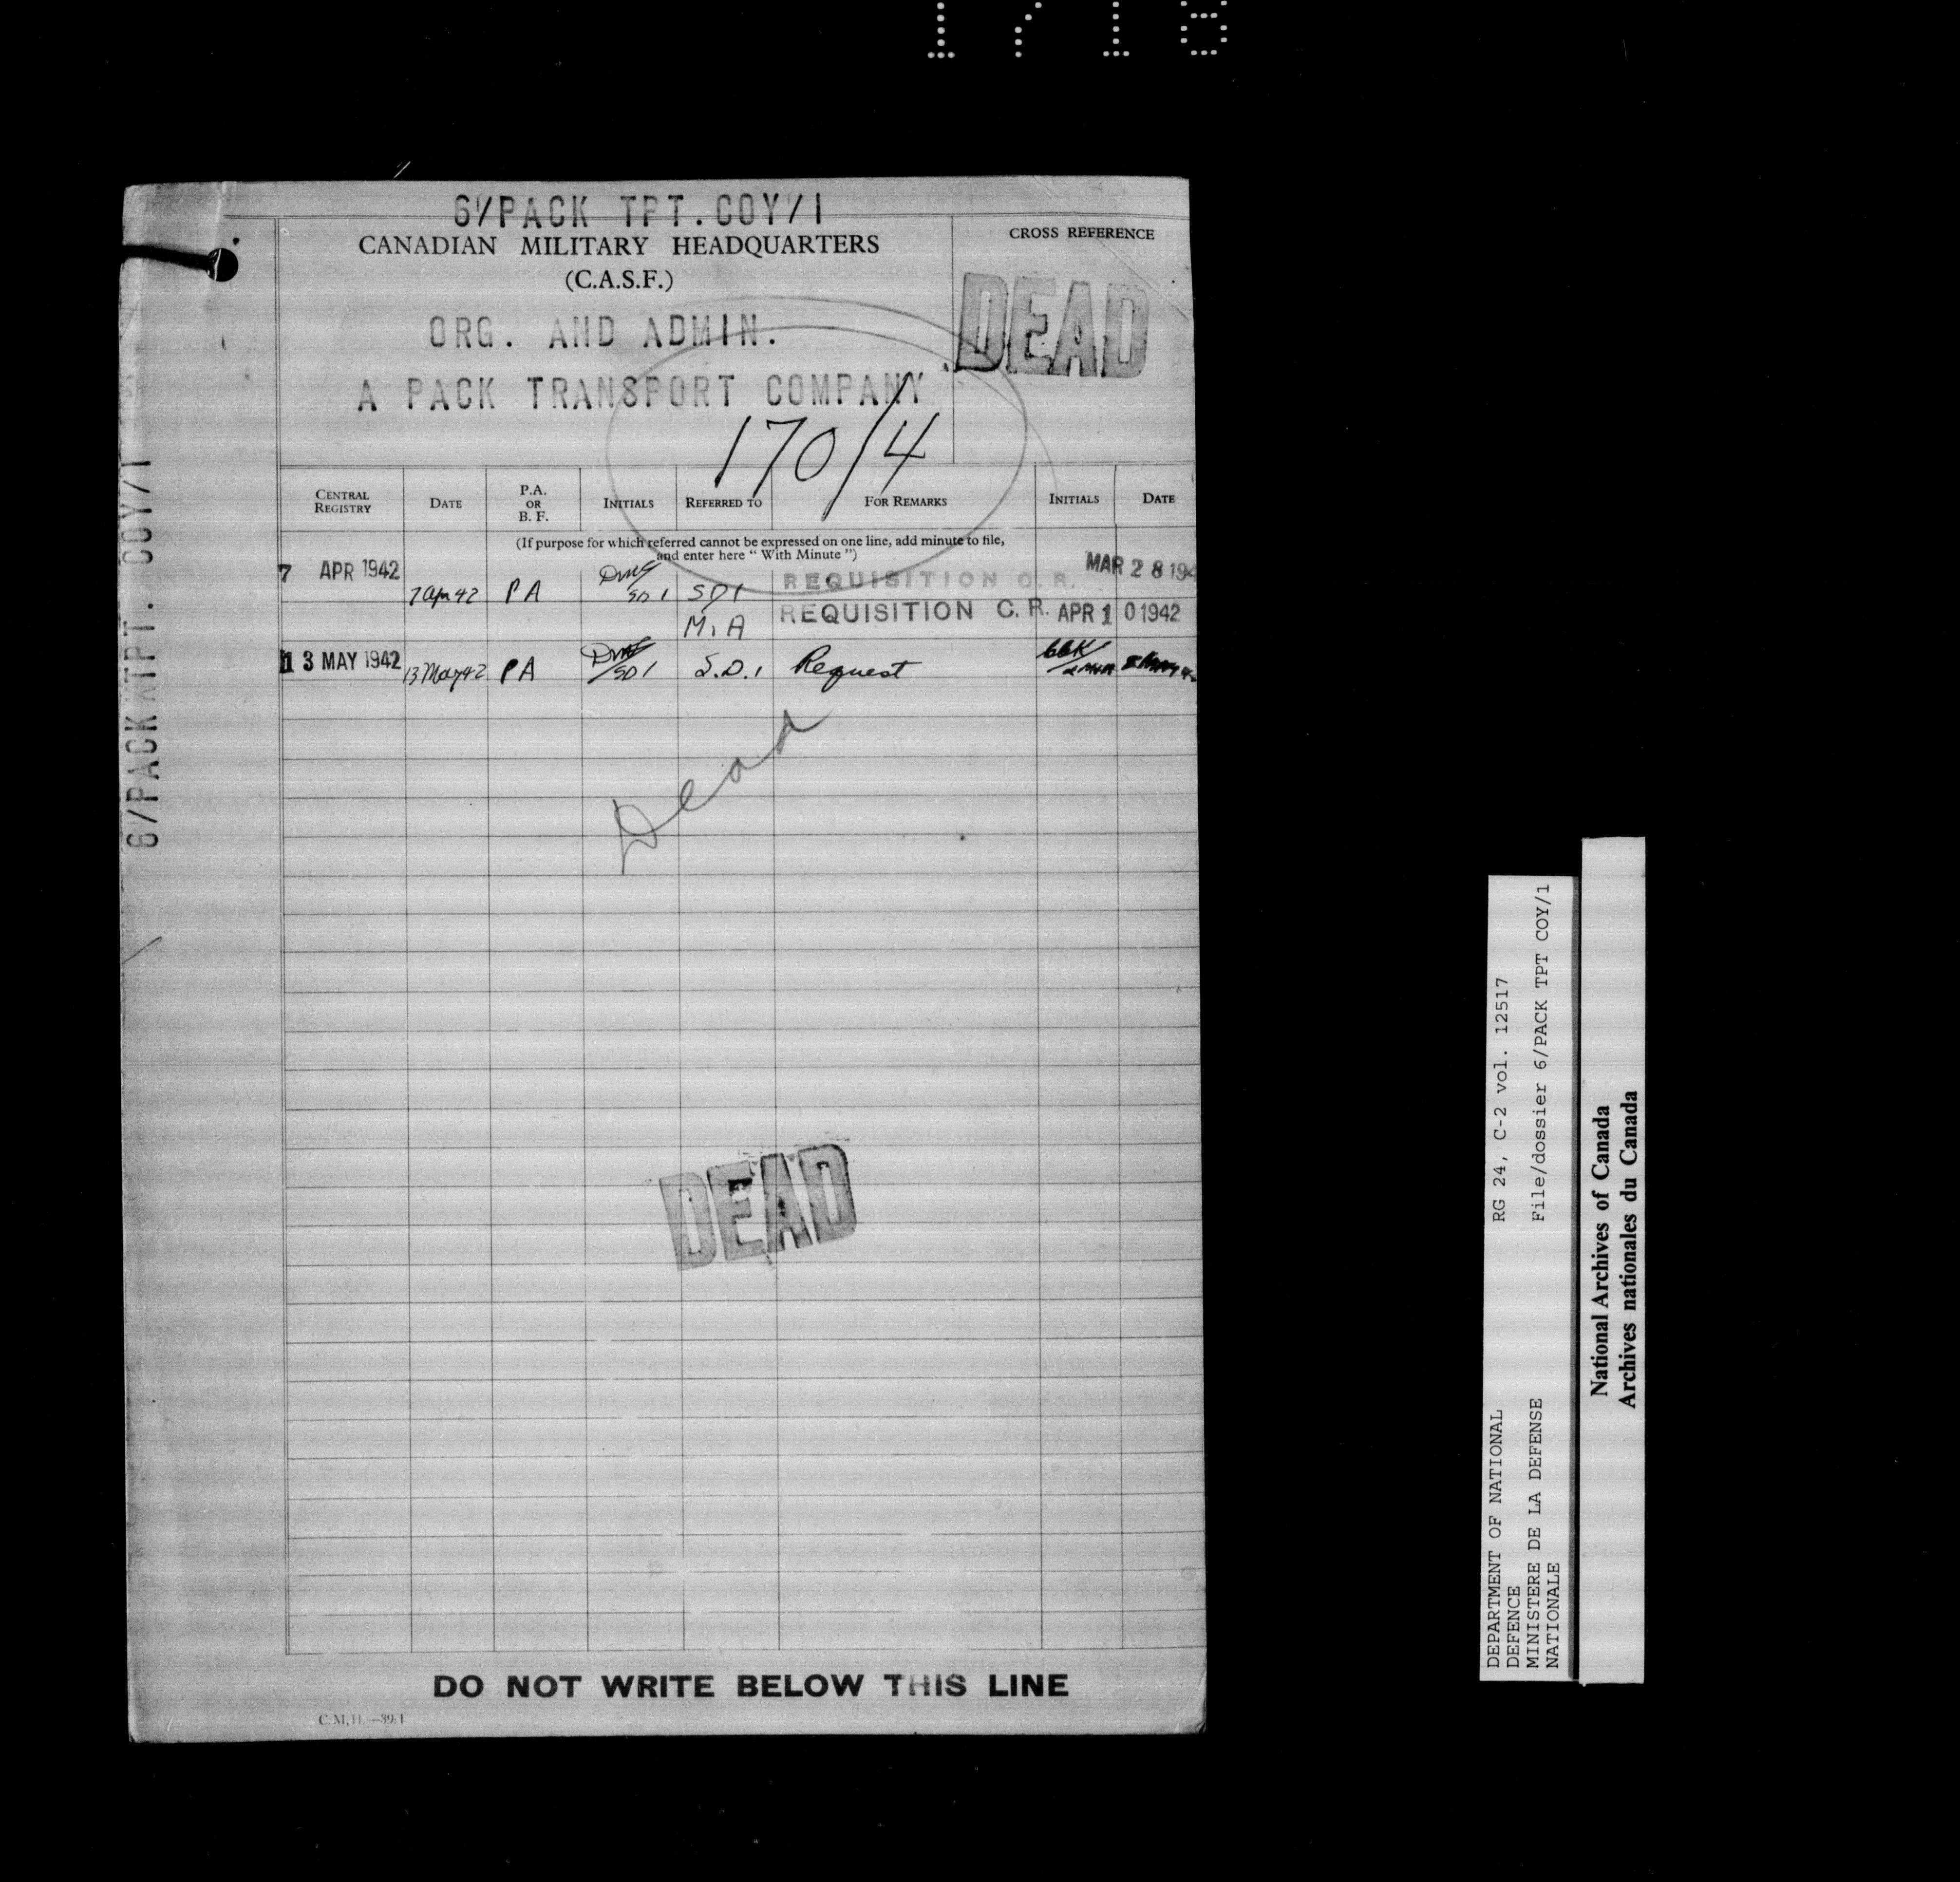 1718
6/PACK TPT. COY/1
CANADIAN MILITARY HEADQUARTERS
(C.A.S.F.)
CROSS REFERENCE
DEAD
ORG. AND ADMIN.
A PACK TRANSPORT COMPANY
170/4
CENTRAL REGISTRY DATE P.A. OR B. F. INITIALS REFERRED TO FOR REMARKS INITIALS DATE
(If purpose for which referred cannot be expressed on one line, add minute to file,
and enter here " With Minute ")
7 APR 1942 7 Apr 42 PA SD1 SD1 REQUISITION C. R. MAR 28 194
M.A REQUISITION C. R. APR 10 1942
13 MAY 1942 13 May 42 PA SD1 S.D.1 Request
Dead
DEAD
DO NOT WRITE BELOW THIS LINE
C.M.H.—39:1
6/PACK TPT. COY/1
DEPARTMENT OF NATIONAL RG 24, C-2 vol. 12517
DEFENCE
MINISTERE DE LA DEFENSE File/dossier 6/PACK TPT COY/1
NATIONALE
National Archives of Canada
Archives nationales du Canada